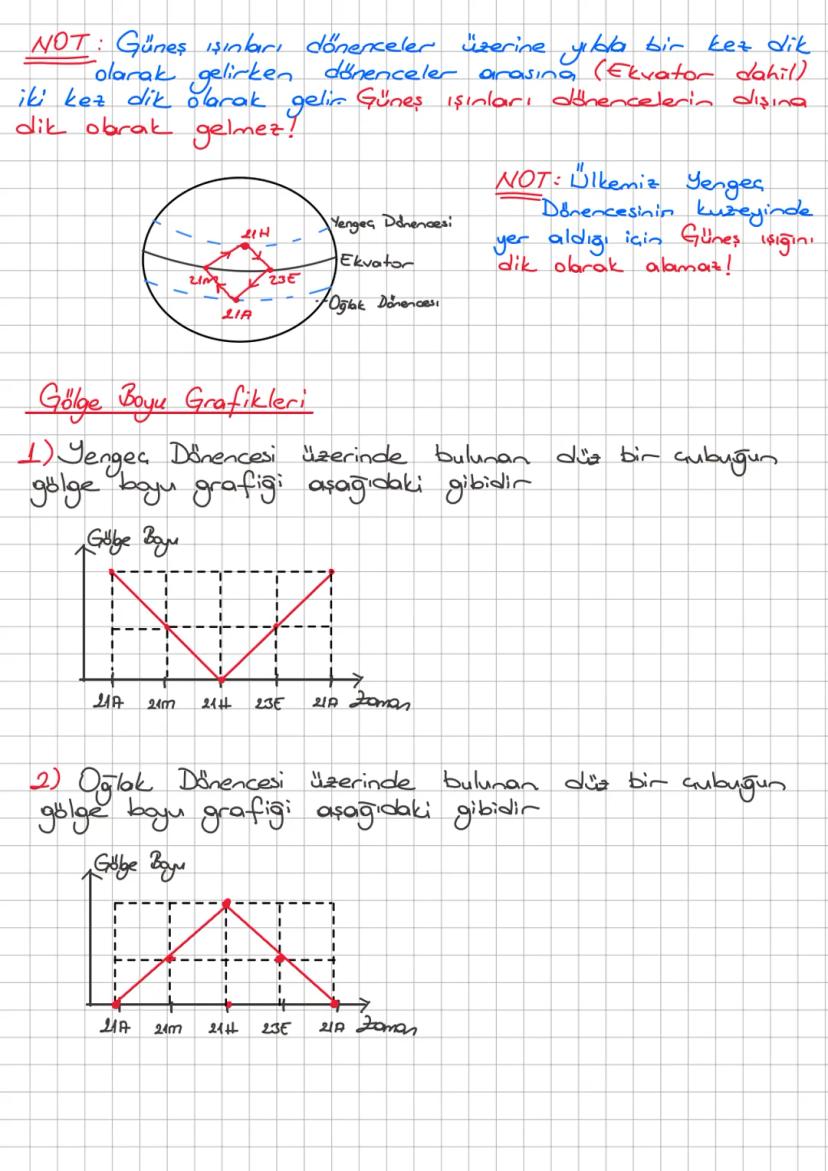 NOT: Güneş ışınları dönenceler üzerine yılda bir kez dik
olarak gelirken dönenceler arasına (Ekvator dahil)
iki kez dik olarak gelir. Güneş ışınları dönencelerin dışına
dik olarak gelmez!
NOT: Ülkemiz Yengeç
Dönencesinin kuzeyinde
yer aldığı için Güneş ışığını
dik olarak alamaz!
Yengeç Dönencesi
21H
Ekvator
21m
23E
Oğlak Dönencesi
21A
Gölge Boyu Grafikleri
1) Yengeç Dönencesi üzerinde bulunan düz bir çubuğun
gölge boyu grafiği aşağıdaki gibidir
Gölge Boyu
21A 21m 21H 23E 21A Zaman
2) Oğlak Dönencesi üzerinde bulunan düz bir çubuğun
gölge boyu grafiği aşağıdaki gibidir
Gölge Boyu
21A 21m 21H 23E 21A Zaman